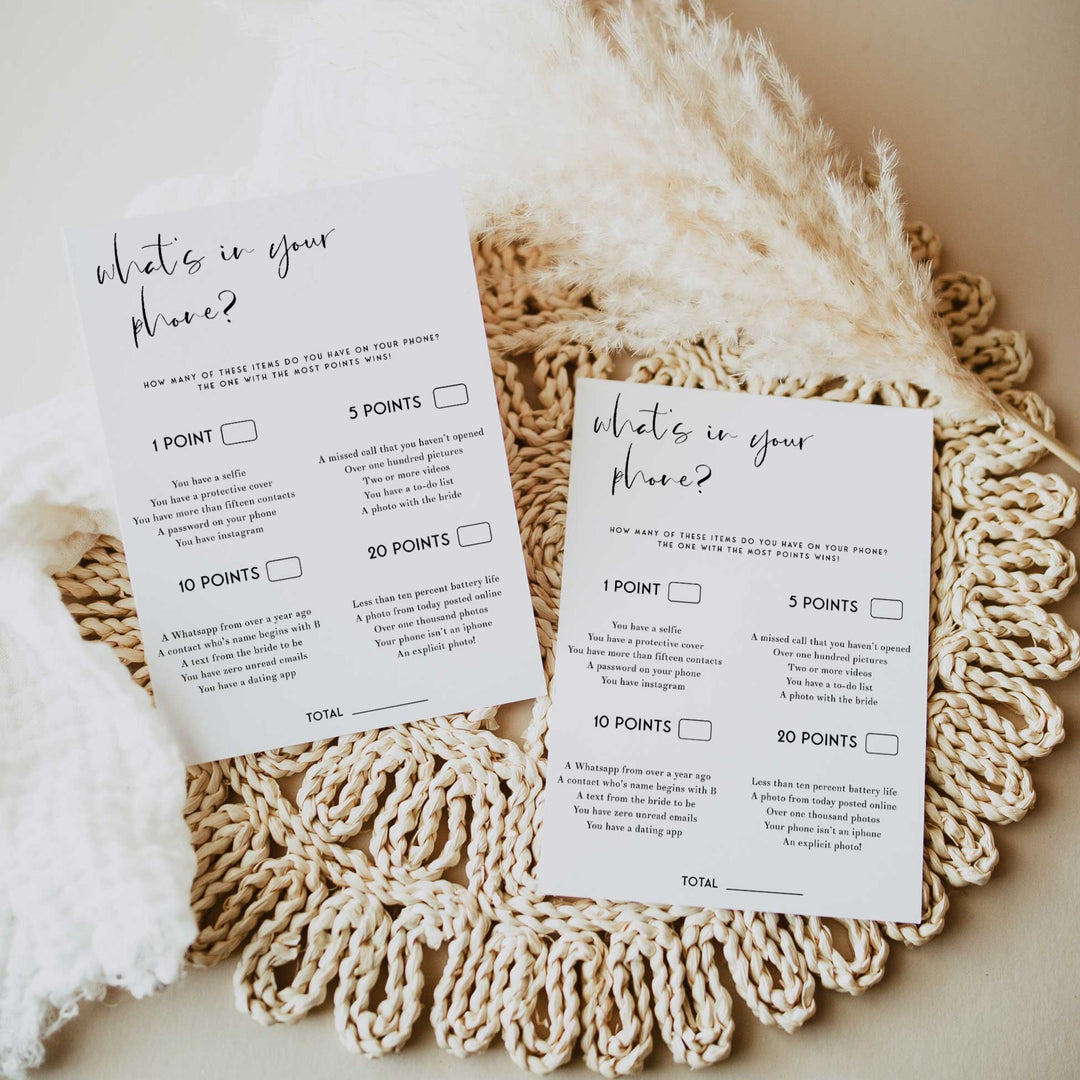 what's in your
phone?
HOW MANY OF THESE ITEMS DO YOU HAVE ON YOUR PHONE?
THE ONE WITH THE MOST POINTS WINS!
1 POINT
You have a selfie
You have a protective cover
You have more than fifteen contacts
A password on your phone
You have instagram
5 POINTS
A missed call that you haven't opened
Over one hundred pictures
Two or more videos
You have a to-do list
A photo with the bride
10 POINTS
A Whatsapp from over a year ago
A contact who's name begins with B
A text from the bride to be
You have zero unread emails
You have a dating app
20 POINTS
Less than ten percent battery life
A photo from today posted online
Over one thousand photos
Your phone isn't an iphone
An explicit photo!
TOTAL
what's in your
phone?
HOW MANY OF THESE ITEMS DO YOU HAVE ON YOUR PHONE?
THE ONE WITH THE MOST POINTS WINS!
1 POINT
You have a selfie
You have a protective cover
You have more than fifteen contacts
A password on your phone
You have instagram
5 POINTS
A missed call that you haven't opened
Over one hundred pictures
Two or more videos
You have a to-do list
A photo with the bride
10 POINTS
A Whatsapp from over a year ago
A contact who's name begins with B
A text from the bride to be
You have zero unread emails
You have a dating app
20 POINTS
Less than ten percent battery life
A photo from today posted online
Over one thousand photos
Your phone isn't an iphone
An explicit photo!
TOTAL